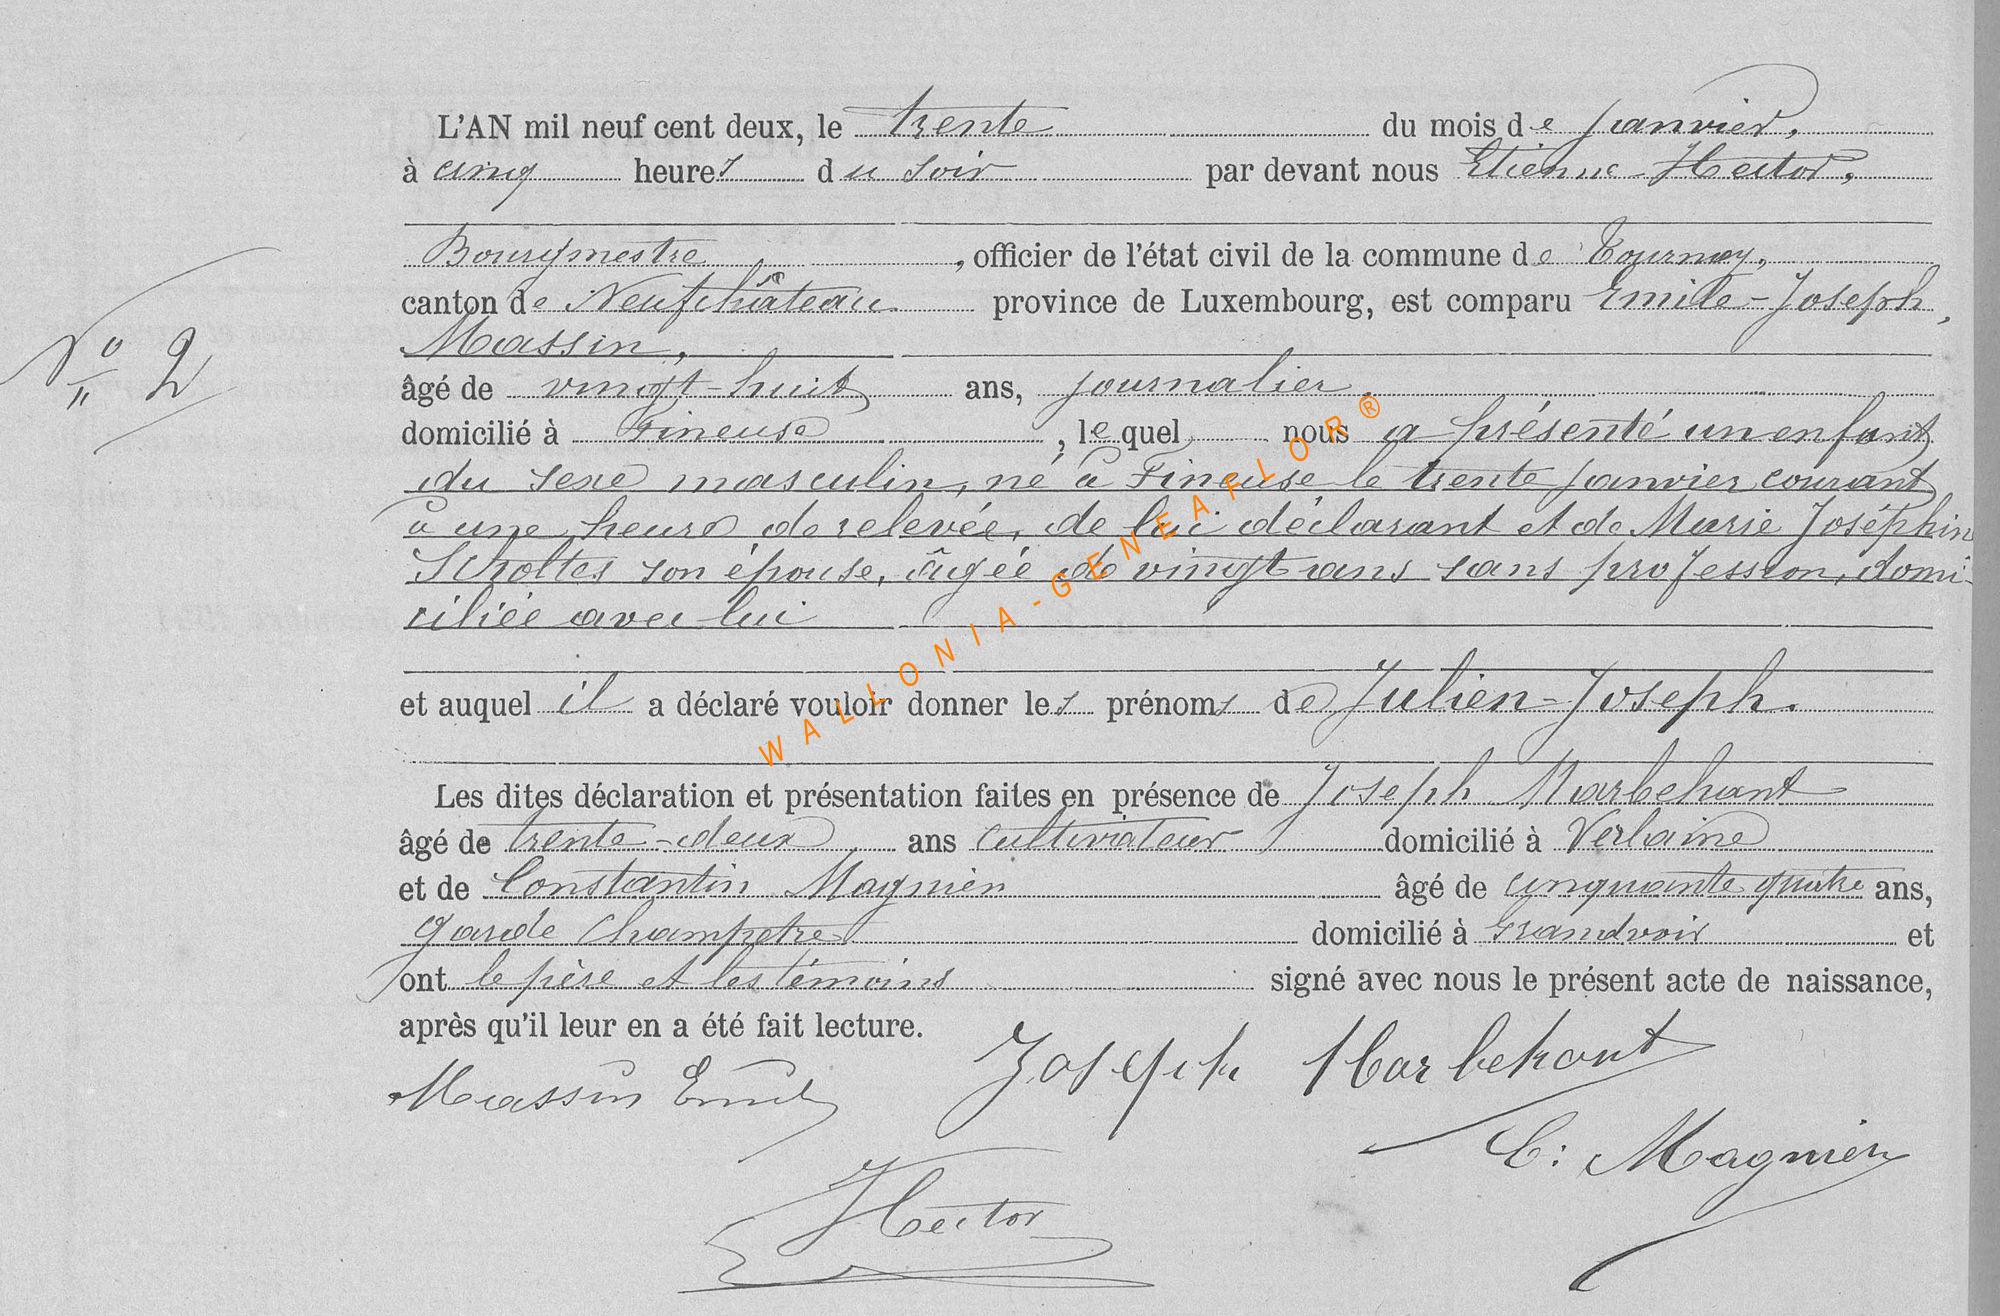 L'AN mil neuf cent deux, le trente du mois de janvier,
à cinq heures du soir par devant nous Etienne-Hector,
Bourgmestre, officier de l'état civil de la commune de Tournay,
canton de Neufchâteau province de Luxembourg, est comparu Emile-Joseph,
Massin,
N° 2
âgé de vingt-huit ans, journalier
domicilié à Fineuse, lequel nous a présenté un enfant
du sexe masculin, né à Fineuse le trente janvier courant
à une heure de relevée, de lui déclarant et de Marie Joséphin
Scholtes son épouse, âgée de vingt ans sans profession, domi-
ciliée avec lui
et auquel il a déclaré vouloir donner les prénoms de Julien-Joseph.
Les dites déclaration et présentation faites en présence de Joseph Marbehant
âgé de trente-deux ans cultivateur domicilié à Verlaine
et de Constantin Magnien âgé de cinquante quatre ans,
garde champetre domicilié à Grandvoir et
ont le père et les témoins signé avec nous le présent acte de naissance,
après qu'il leur en a été fait lecture.
Massin Emile Joseph Marbehant
C: Magnien
Hector
WALLONIA-GENEAFLOR®